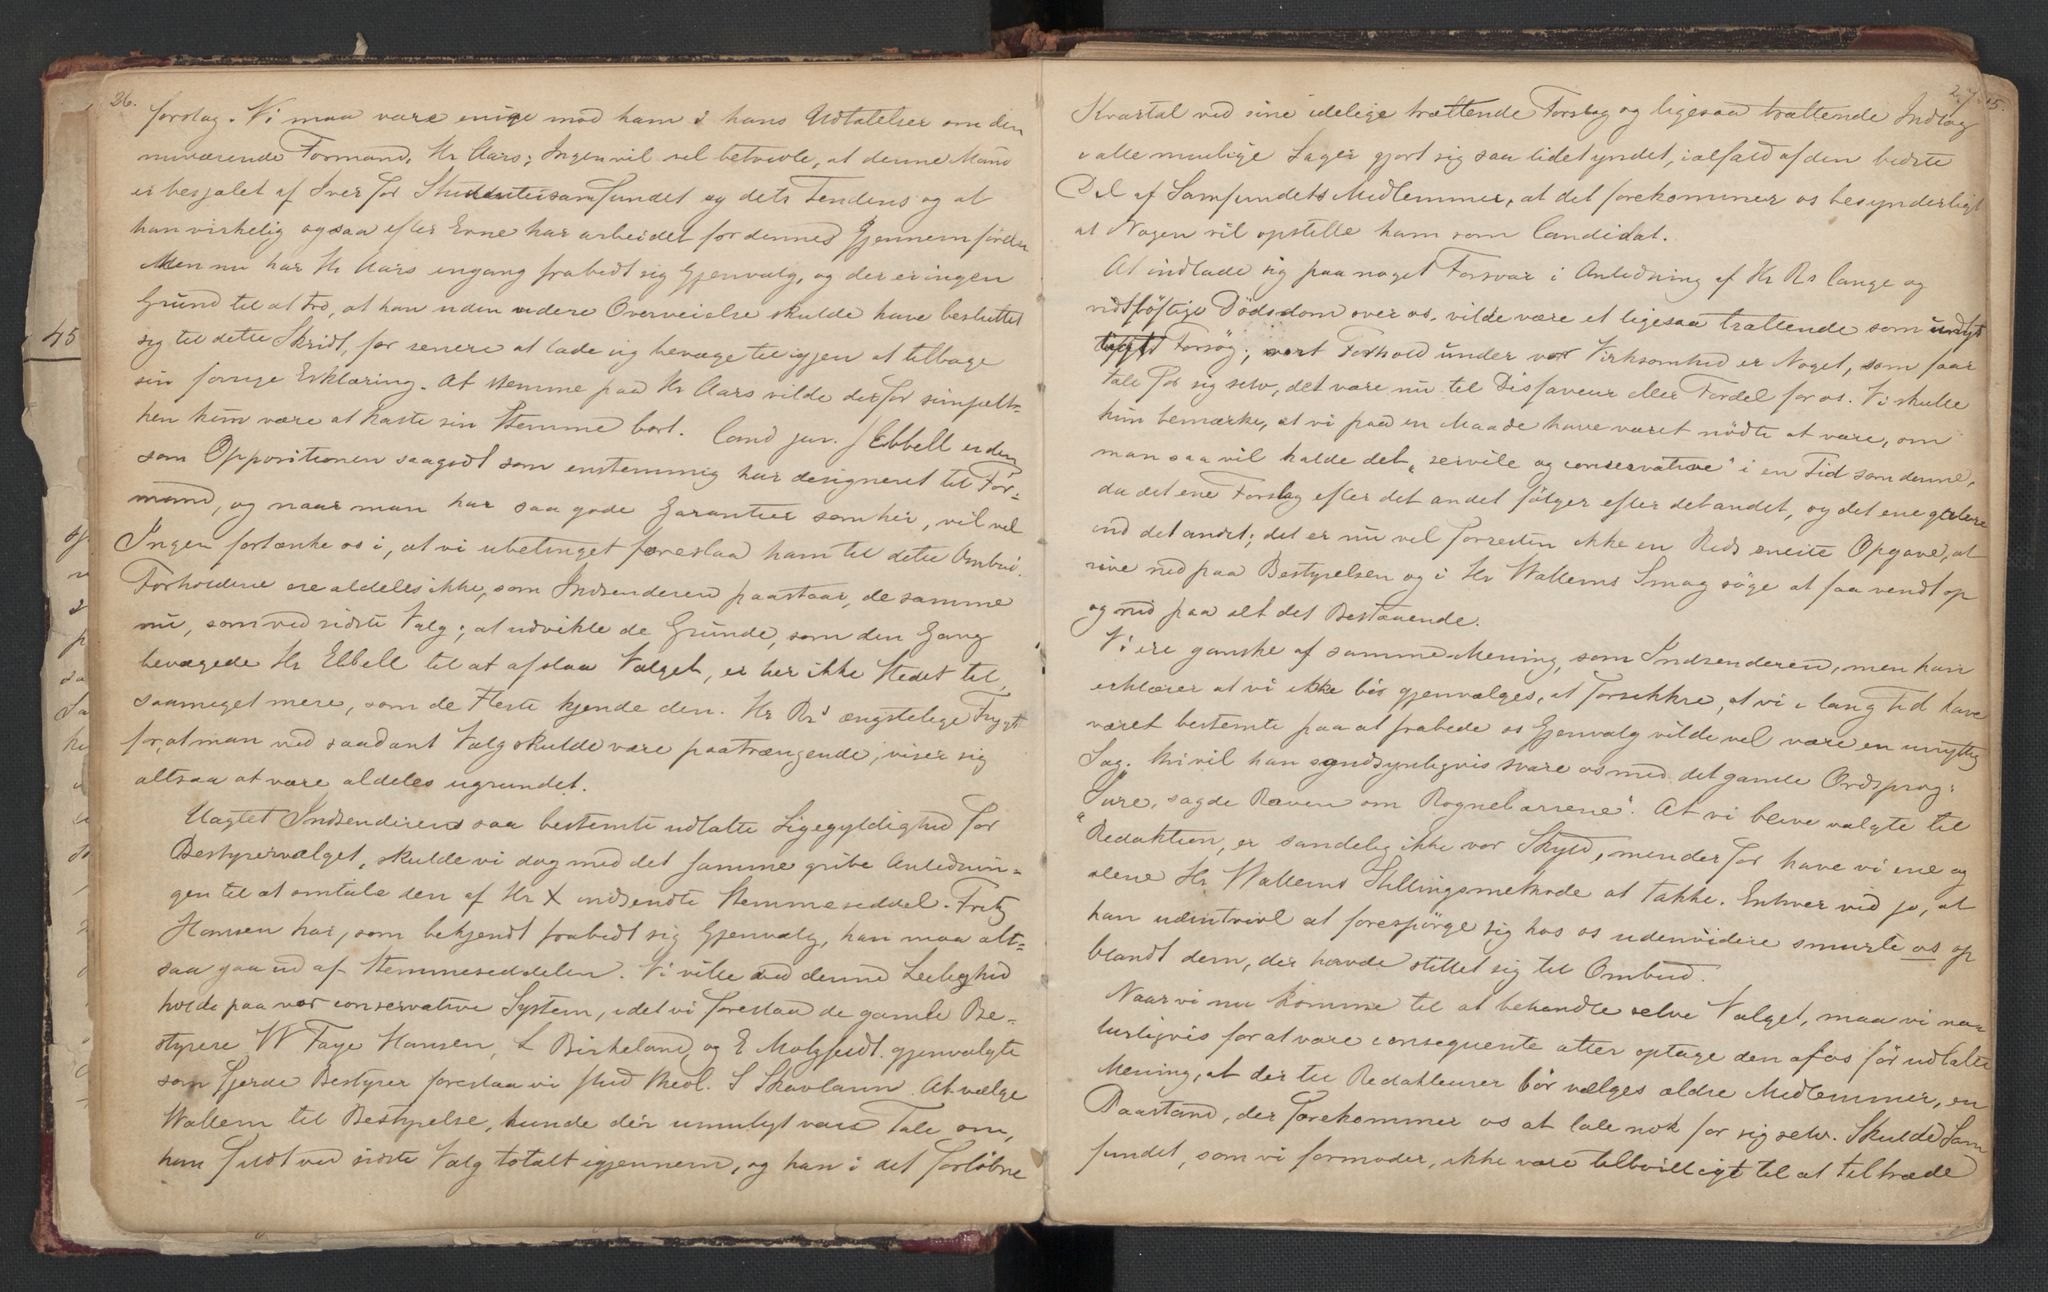 26.
forslag. Vi maa være enige med ham i hans Udtalelser om den
nuværende Formand, Hr Aars; Ingen vil vel betvivle, at denne Mand
er besjælet af Iver for Studentersamfundet og dets Tendens og at
han virkelig ogsaa efter Evne har arbeidet for dennes Gjennemførelse
Men nu har Hr Aars engang frabedt sig Gjenvalg, og der er ingen
Grund til at tro, at han uden videre Overveielse skulde have besluttet
sig til dette Skridt, for senere at lade sig bevæge til igjen at tilbage
sin forrige Erklæring. At stemme paa Hr Aars vilde derfor simpelt-
hen kun være at kaste sin Stemme bort. Cand jur. J Ebbell er den
som Oppositionen saagodt som enstemmig har designeret til For-
mand, og naar man har saa gode Garantier som her, vil vel
Ingen fortænke os i, at vi ubetinget foreslaa ham til dette Ombud.
Forholdene ere aldeles ikke, som Indsenderen paastaar, de samme
nu, som ved sidste Valg; at udvikle de Grunde, som den Gang
bevægede Hr Ebbell til at afslaa Valget, er her ikke Stedet til,
saameget mere, som de Fleste kjende dem. Hr R's ængstelige Frygt
for, at man ved saadant Valg skulde være paatrængende, viser sig
altsaa at være aldeles ugrundet.
Uagtet Indsenderens saa bestemte udtalte Ligegyldighed for
Bestyrervalget, skulde vi dog med det samme gribe Anlednin-
gen til at omtale den af Hr X indsendte Stemmeseddel. Fritz
Hansen har, som bekjendt frabedt sig Gjenvalg, han maa alt-
saa gaa ud af Stemmeseddelen. Vi ville ved denne Leilighed
holde paa vor conservative System, idet vi foreslaa de gamle Be-
styrere W Faye Hansen, L Birkeland og E Motzfeldt gjenvalgte
som fjerde Bestyrer foreslaa vi stud med. S Skavlann. At vælge
Wallem til Bestyrelse, kunde der umuligt være Tale om,
han faldt ved sidste Valg totalt igjennem, og han i det forløbne
27.
Kvartal ved sine idelige trættende Forslag og ligesaa trættende Indlæg
i alle mulige Sager gjort sig saa lidet yndet, ialfald af den bedste
Del af Samfundets Medlemmer, at det forekommer os besynderligt
at Nogen vil opstille ham som Candidat.
At indlade sig paa noget Forsvar i Anledning af Hr Rs lange og
vidtløftige Dødsdom over os, vilde være et ligesaa trættende som unyt
Forsøg; vort Forhold under vor Virksomhed er Noget, som faar
tale for sig selv, det være nu til Disfaveur eller Fordel for os. Vi skulle
kun bemærke, at vi paa en Maade have været nødte at være, om
man saa vil kalde det, "servile og conservative" i en Tid som denne,
da det ene Forslag efter det andet følger efter det andet, og det ene galere
end det andet; det er nu vel forresten ikke en Reds eneste Opgave, at
rive ned paa Bestyrelsen og i Hr Wallems Smag søge at faa vendt op
og ned paa alt det Bestaaende.
Vi ere ganske af samme Mening, som Indsenderen, men han
erklærer at vi ikke bør gjenvælges, at forsikkre, at vi i lang Tid have
været bestemte paa at frabede os Gjenvalg vilde vel være en unyttig
Sag. thi vil han sandsynligvis svare os med det gamle Ordsprog:
"Sure, sagde Ræven om Rognebærrene". At vi bleve valgte til
Redaktion, er sandelig ikke vor Skyld, men derfor have vi ene og
alene Hr Wallems Stillingsmethode at takke. Enhver ved jo, at
han uden tvivl at forespørge sig hos os udenvidere smurte os op
blandt dem, der havde stillet sig til Ombud.
Naar vi nu komme til at behandle selve Valget, maa vi na-
turligvis for at være consequente atter optage den af os før udtalte
Mening, at der til Redakteurer bør vælges ældre Medlemmer, en
Paastand, der forekommer os at tale nok for sig selv. Skulde Sam
fundet, som vi formoder, ikke være tilbøieligt til at tiltræde
15.
45